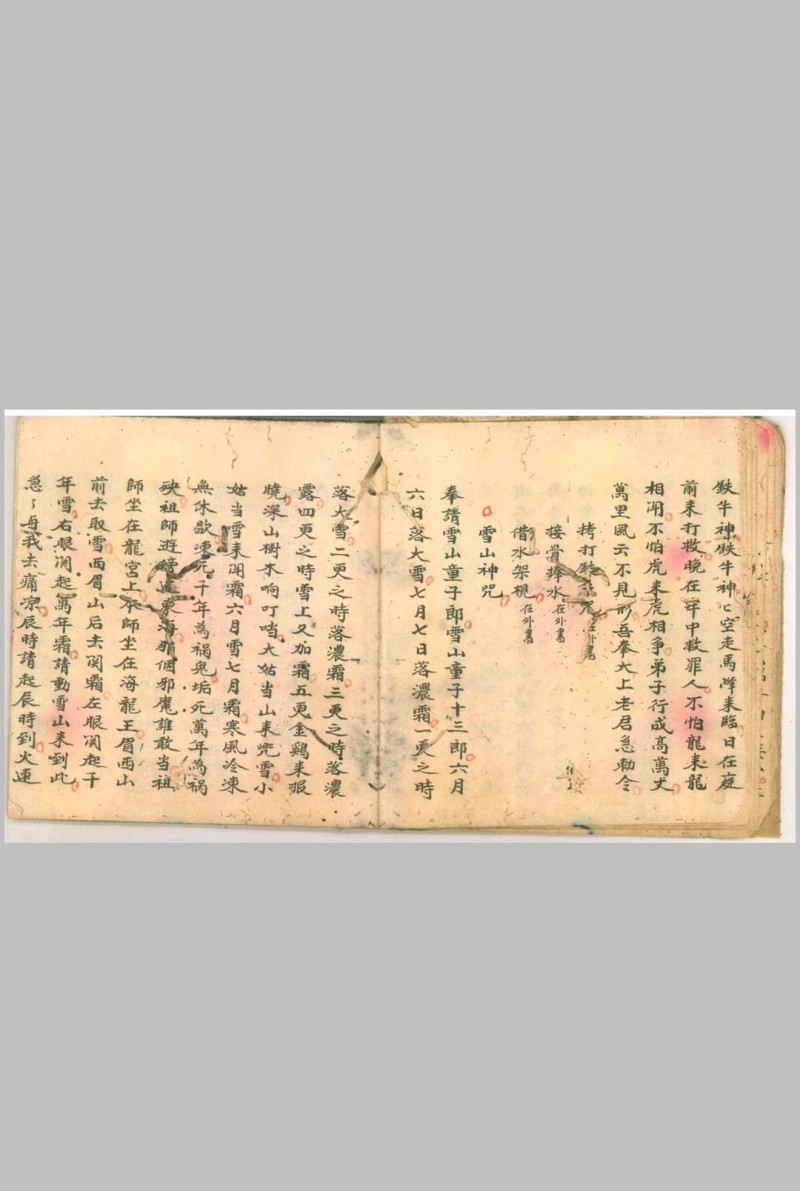 鉄牛神鉄牛神〻空走馬降来臨日在庭
前来打救晚在牢中救罪人不怕龍来龍
相闹不怕虎来虎相争弟子行成高萬丈
萬里風云不見形吾奉大上老君急勅令
拷打
接骨捧水在外書
借水架梘在外書
雪山神咒
奉請雪山童子郎雪山童子十三郎六月
六日落大雪七月七日落濃霜一更之時
落大雪二更之時落濃霜三更之時落濃
露四更之時雪上又加霜五更金鷄来报
曉深山樹木响叮噹大姑当山来兜雪小
姑当雪来闹霜六月雪七月霜寒風冷凍
無休歇凍死千年為禍鬼垢死萬年為禍
殃祖師遊東海那個邪魔誰敢当祖
師坐在龍宮上本師坐在海龍王眉西山
前去取雪西眉山后去関霜左眼関起千
年雪右眼関起萬年霜請動雪山来到此
急〻与我去痛凉辰時請起辰時到火速